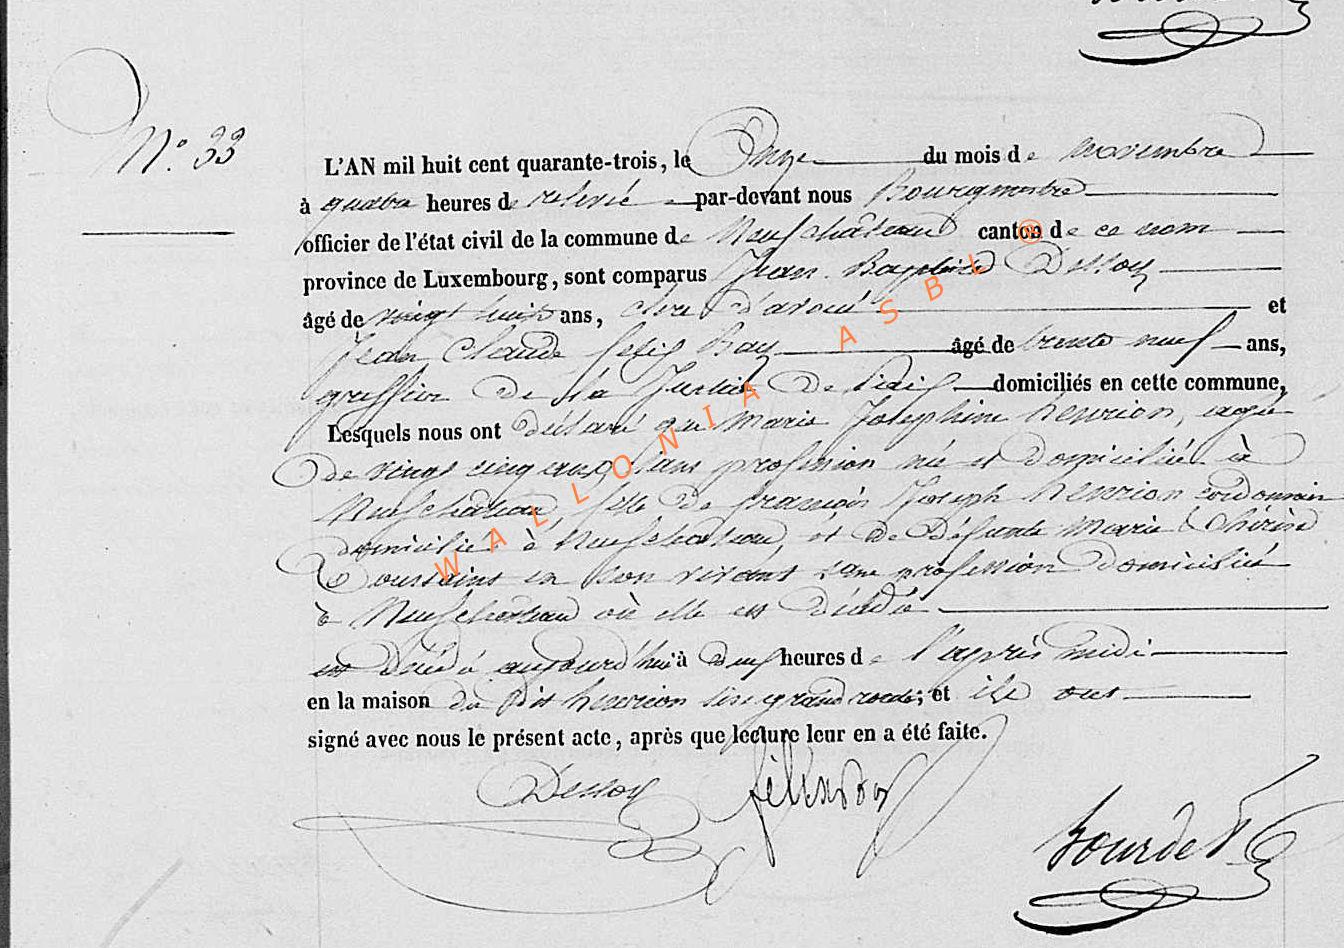 N.° 33
L'AN mil huit cent quarante-trois, le Onze du mois de novembre
à quatre heures de relevée par-devant nous Bourgmestre
officier de l'état civil de la commune de Neufchâteau canton de ce nom
province de Luxembourg, sont comparus Jean Baptiste Dessoy
âgé de vingt huit ans, clerc d'avoué et
Jean Claude félix âgé de trente neuf ans,
greffier de la Justice de Paix domiciliés en cette commune,
Lesquels nous ont déclaré que Marie Josephine henrion, agée
de vingt cinq ans, sans profession née et domiciliée à
Neufchateau fille de françois Joseph henrion cordonnier
domicilié à Neufchateau, et de défunte Marie thérèse
Toussaint en son vivant sans profession domiciliée
à Neufchateau où elle est décédée
est décédée aujourd'hui à deux heures de l'après midi
en la maison du dit henrion sise grand rue; et ils ont
signé avec nous le présent acte, après que lecture leur en a été faite.
Dessoy
Bourdet
WALLONIA ASBL ®